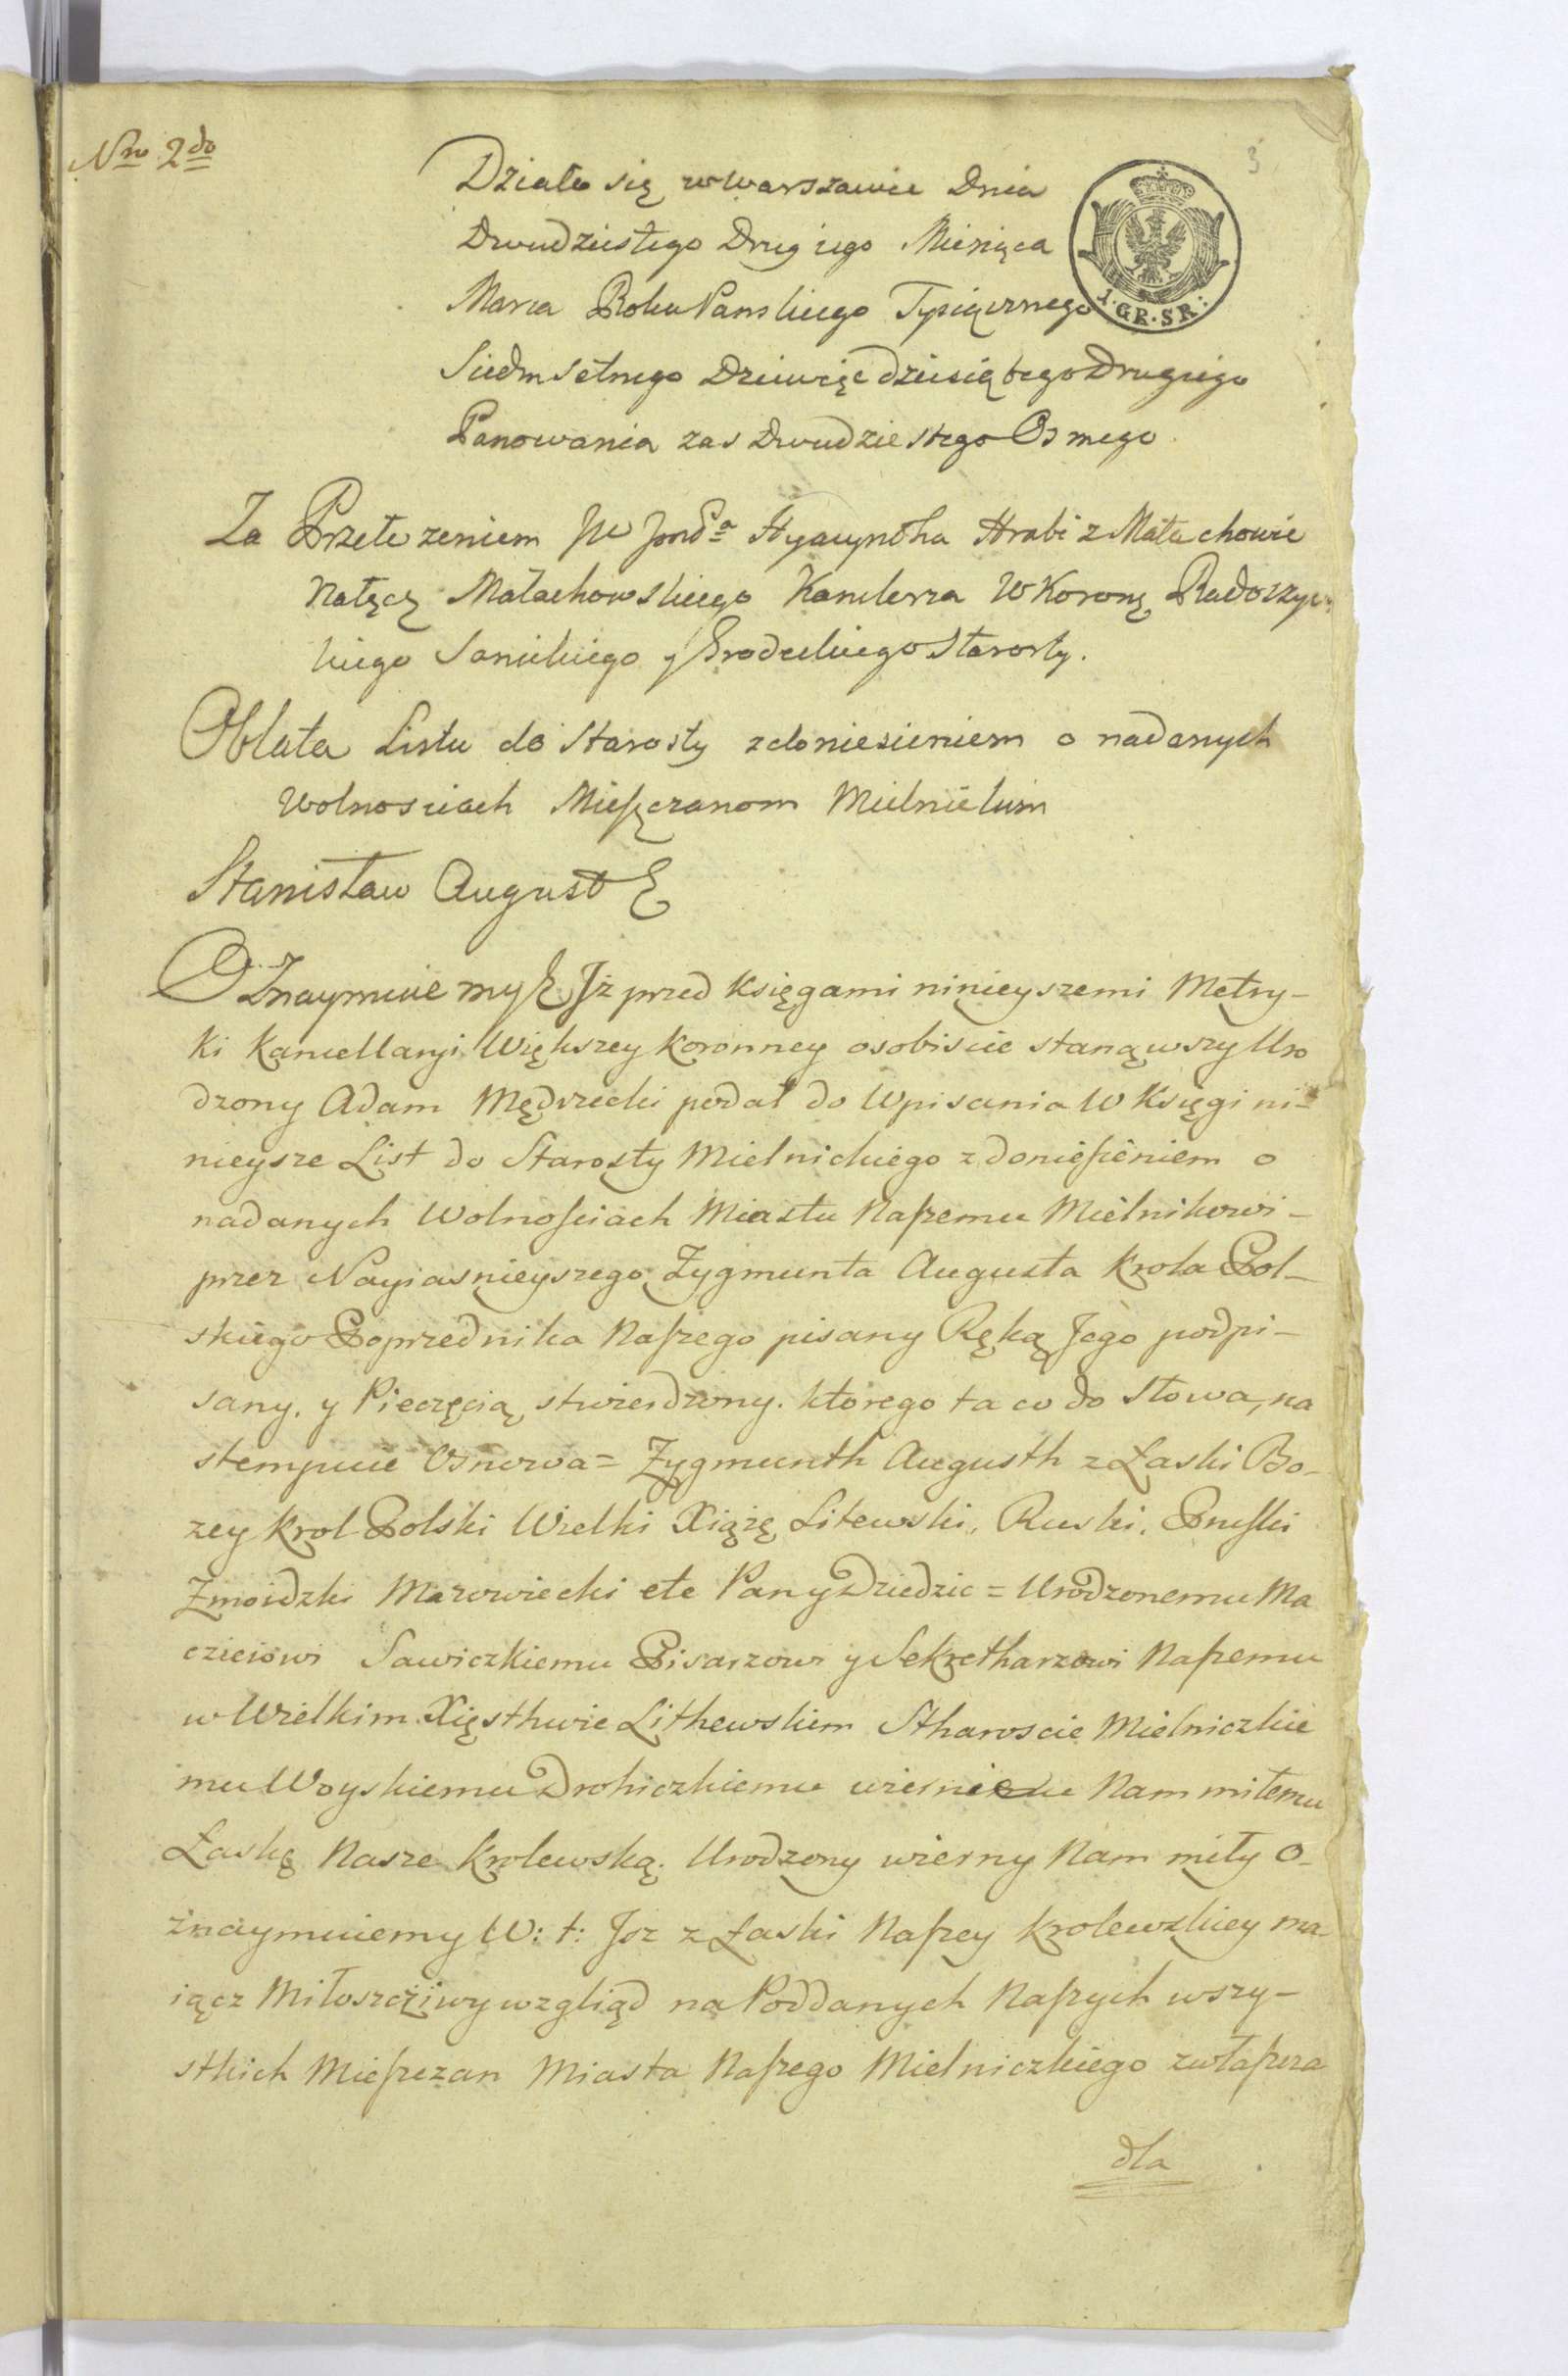 Nro 2do
3
Działo się w Warszawie Dnia
Dwudziestego Drugiego Miesiąca
Marca Roku Panskiego Tysiącznego
1. GR. SR:
Siedmsetnego Dziewięcdziesiątego Drugiego
Panowania zas Dwudziestego Osmego
Za Przełozeniem JW Hyacyntha Hrabi z Małachowic
Nałęcz Małachowskiego Kanclerza W Korony Radoszyc
kiego Sanickiego y Grodeckiego Starosty.
Oblata Listu do Starosty z doniesieniem o nadanych
Wolnosciach Mieszczanom Mielnickim
Stanisław August &
Oznaymuiemy & Jż przed Księgami ninieyszemi Metry-
ki Kancellaryi Większey Koronney osobiscie stanąwszy Uro
dzony Adam Mędrzecki podał do Wpisania W Księgi ni-
nieysze List do Starosty Mielnickiego z doniesieniem o
nadanych Wolnościach Miastu Naszemu Mielnikowi -
przez Nayiasnieyszego Zygmunta Augusta Krola Pol-
skiego Poprzednika Naszego pisany Ręką Jego podpi-
sany. y Pieczęcią stwierdzony. ktorego ta co do Słowa, na
stempuie Osnowa = Zygmunth Augusth z Łaski Bo-
zey Krol Polski Wielki Xiążę Litewski, Ruski, Pruski
Zmoidzki Mazowiecki etc Pan y Dziedzic = Urodzonemu Ma
czieiowi Sawiczkiemu Pisarzowi y Sekretharzowi Naszemu
w Wielkim Xięsthwie Lithewskiem Stharoscie Mielniczkie
mu Woyskiemu Drohiczkiemu wiernie Nam miłemu
Łaskę Nasze Krolewską. Urodzony wierny Nam miły O-
znaymuiemy W: t: Jsz z Łaski Naszey Krolewskiey ma-
iącz Miłoszcziwy wzgliąd na Poddanych Naszych wszy-
sthich Mieszczan Miasta Naszego Mielniczkiego zwłaszcza
dla